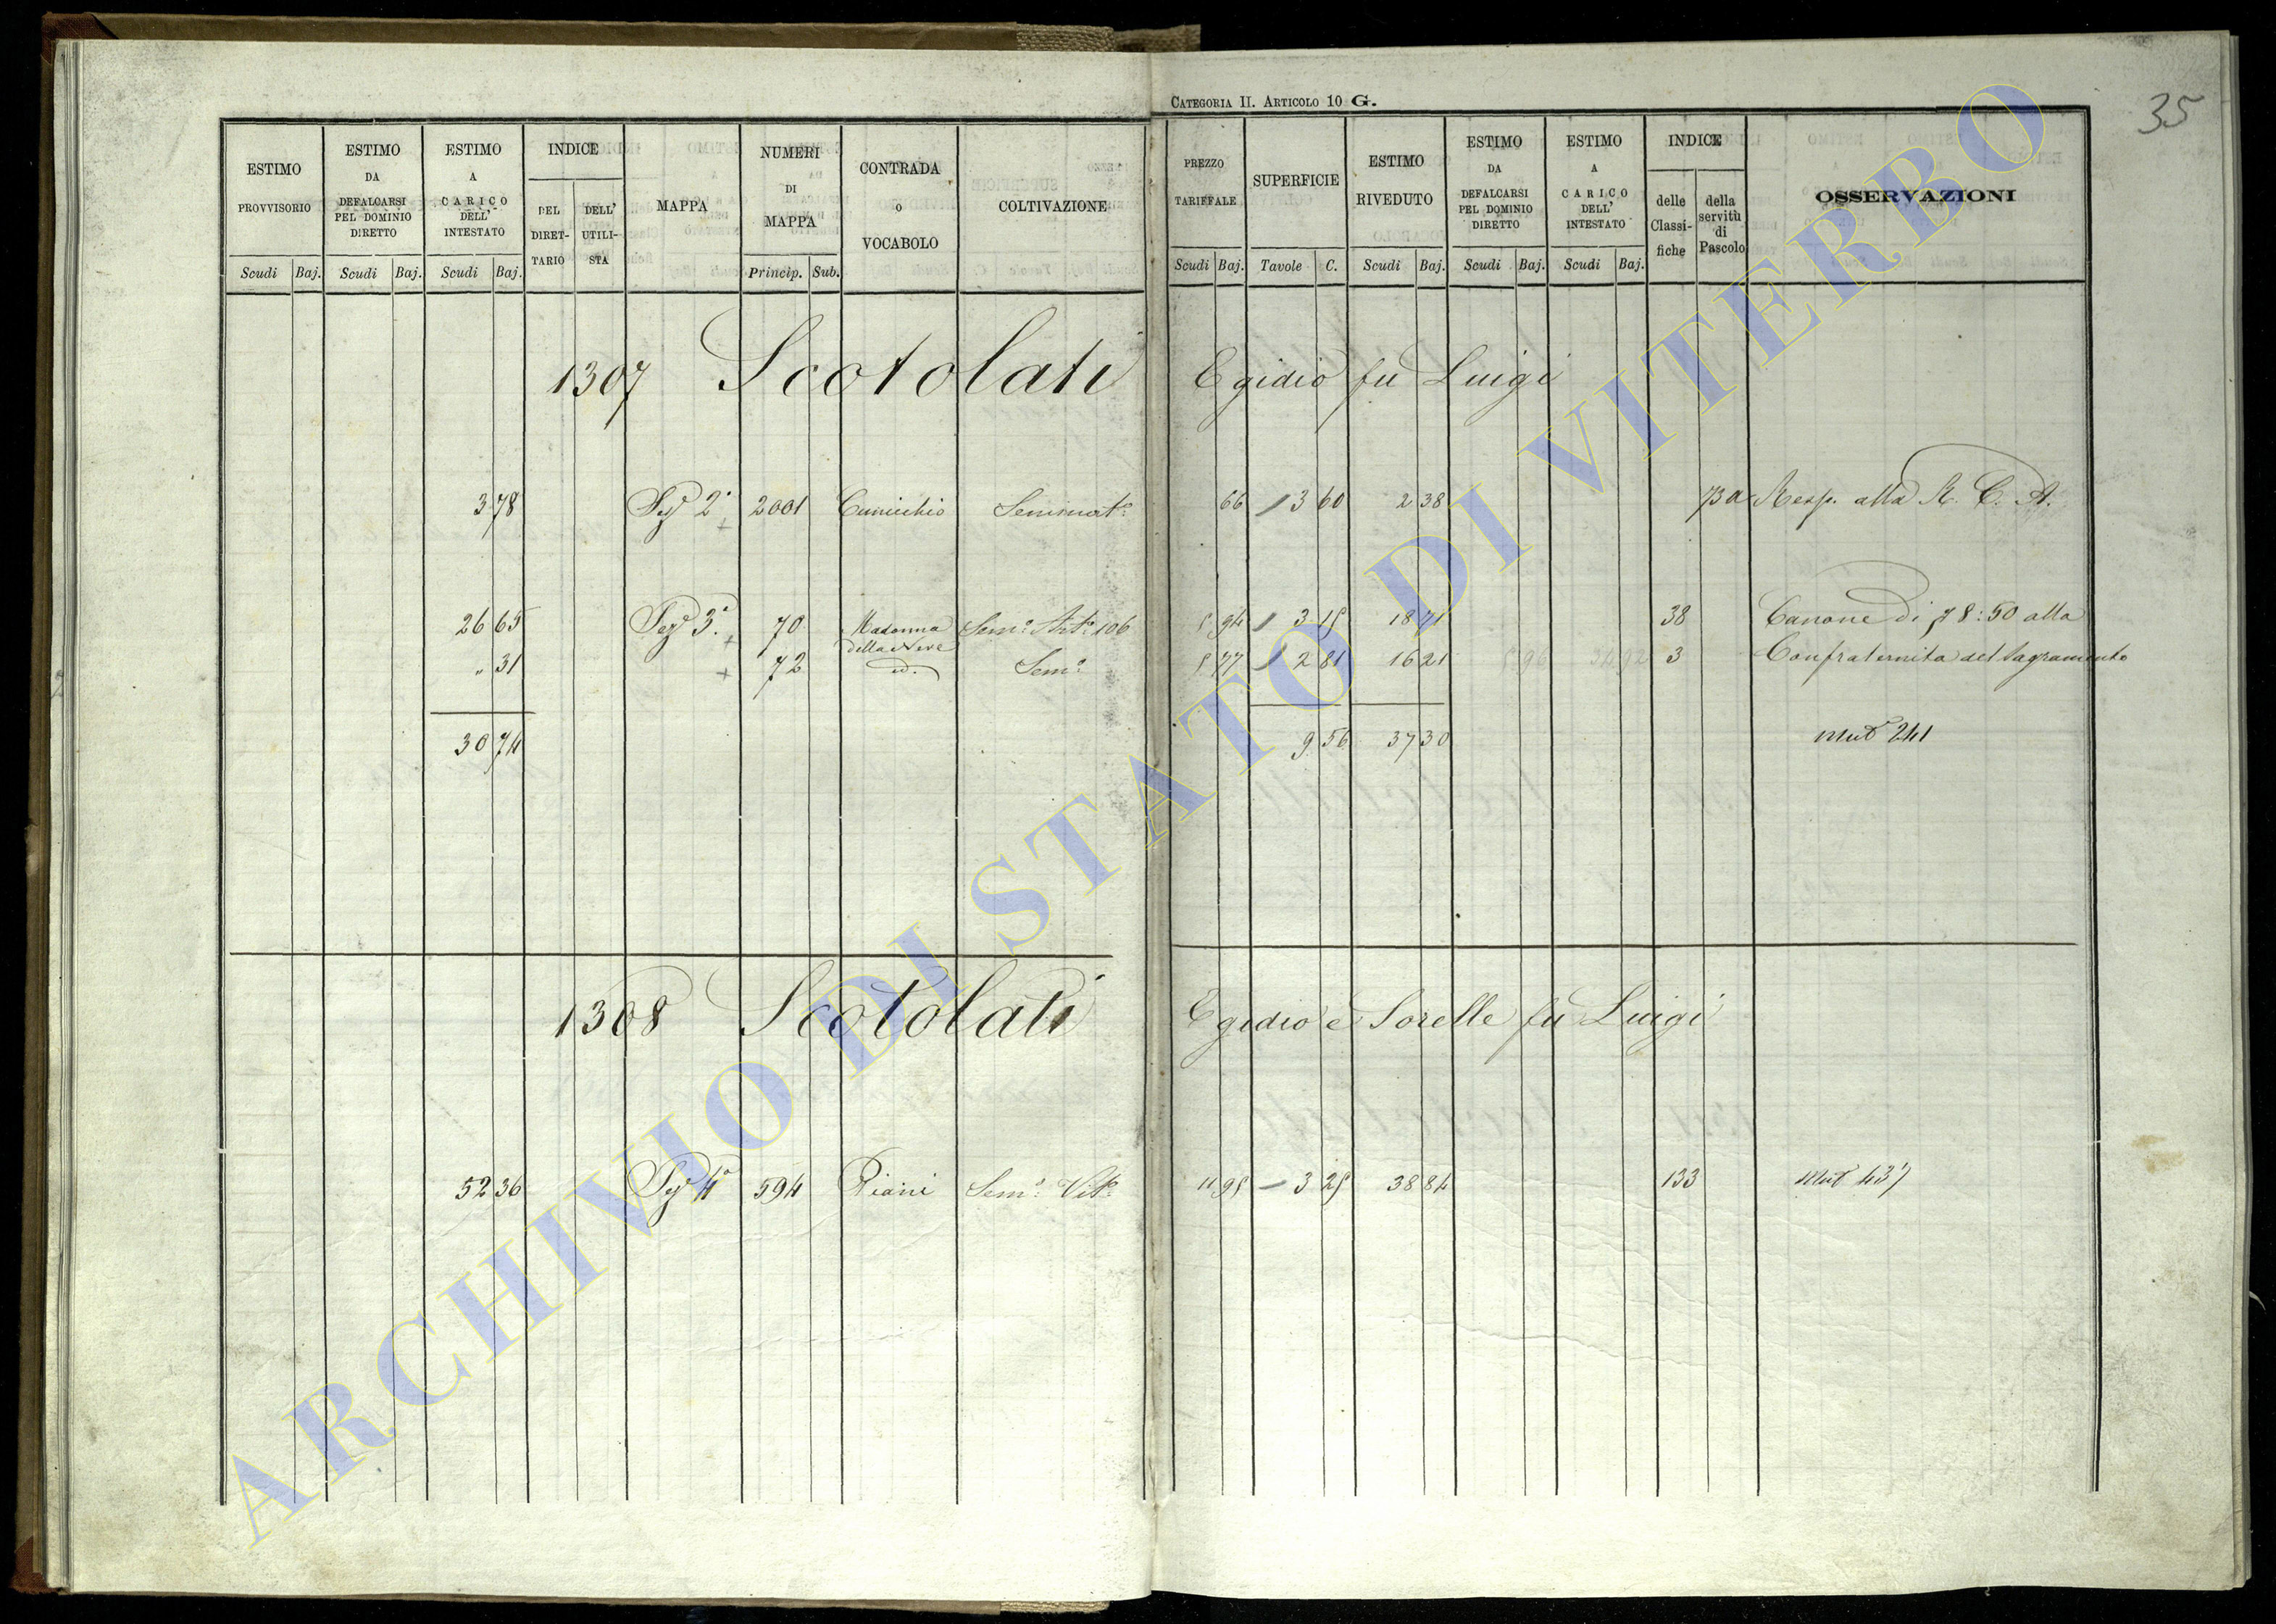 CATEGORIA II. ARTICOLO 10 G.
35
ESTIMO PROVVISORIO
ESTIMO DA DEFALCARSI PEL DOMINIO DIRETTO
ESTIMO A CARICO DELL' INTESTATO
INDICE
DEL DIRET-TARIO
DELL' UTILI-STA
MAPPA
NUMERI DI MAPPA
CONTRADA o VOCABOLO
COLTIVAZIONE
PREZZO TARIFFALE
SUPERFICIE
ESTIMO RIVEDUTO
ESTIMO DA DEFALCARSI PEL DOMINIO DIRETTO
ESTIMO A CARICO DELL' INTESTATO
INDICE
delle Classi-fiche
della servitù di Pascolo
OSSERVAZIONI
Scudi Baj. Scudi Baj. Scudi Baj. Princip. Sub. Scudi Baj. Tavole C. Scudi Baj. Scudi Baj. Scudi Baj.
1307 Scotolati Egidio fu Luigi
3 78 Sez.e 2a 2001 Cunicchio Seminat.o 66 3 60 2 38 Resp. alla R. C. A.
26 65 Sez.e 3a 70 Madonna della Neve Sem.o Art.o 106 5 94 3 15 18 71 38 Canone di 8:50 alla
" 31 72 id. Sem.o 5 77 2 81 16 21 3 Confraternita del Sagramento
30 74 9 56 37 30 Mut 241
1308 Scotolati Egidio e Sorelle fu Luigi
52 36 Sez.e 4a 594 Piani Sem.o Vit.o 11 95 3 25 38 84 133 Mut 437
ARCHIVIO DI STATO DI VITERBO